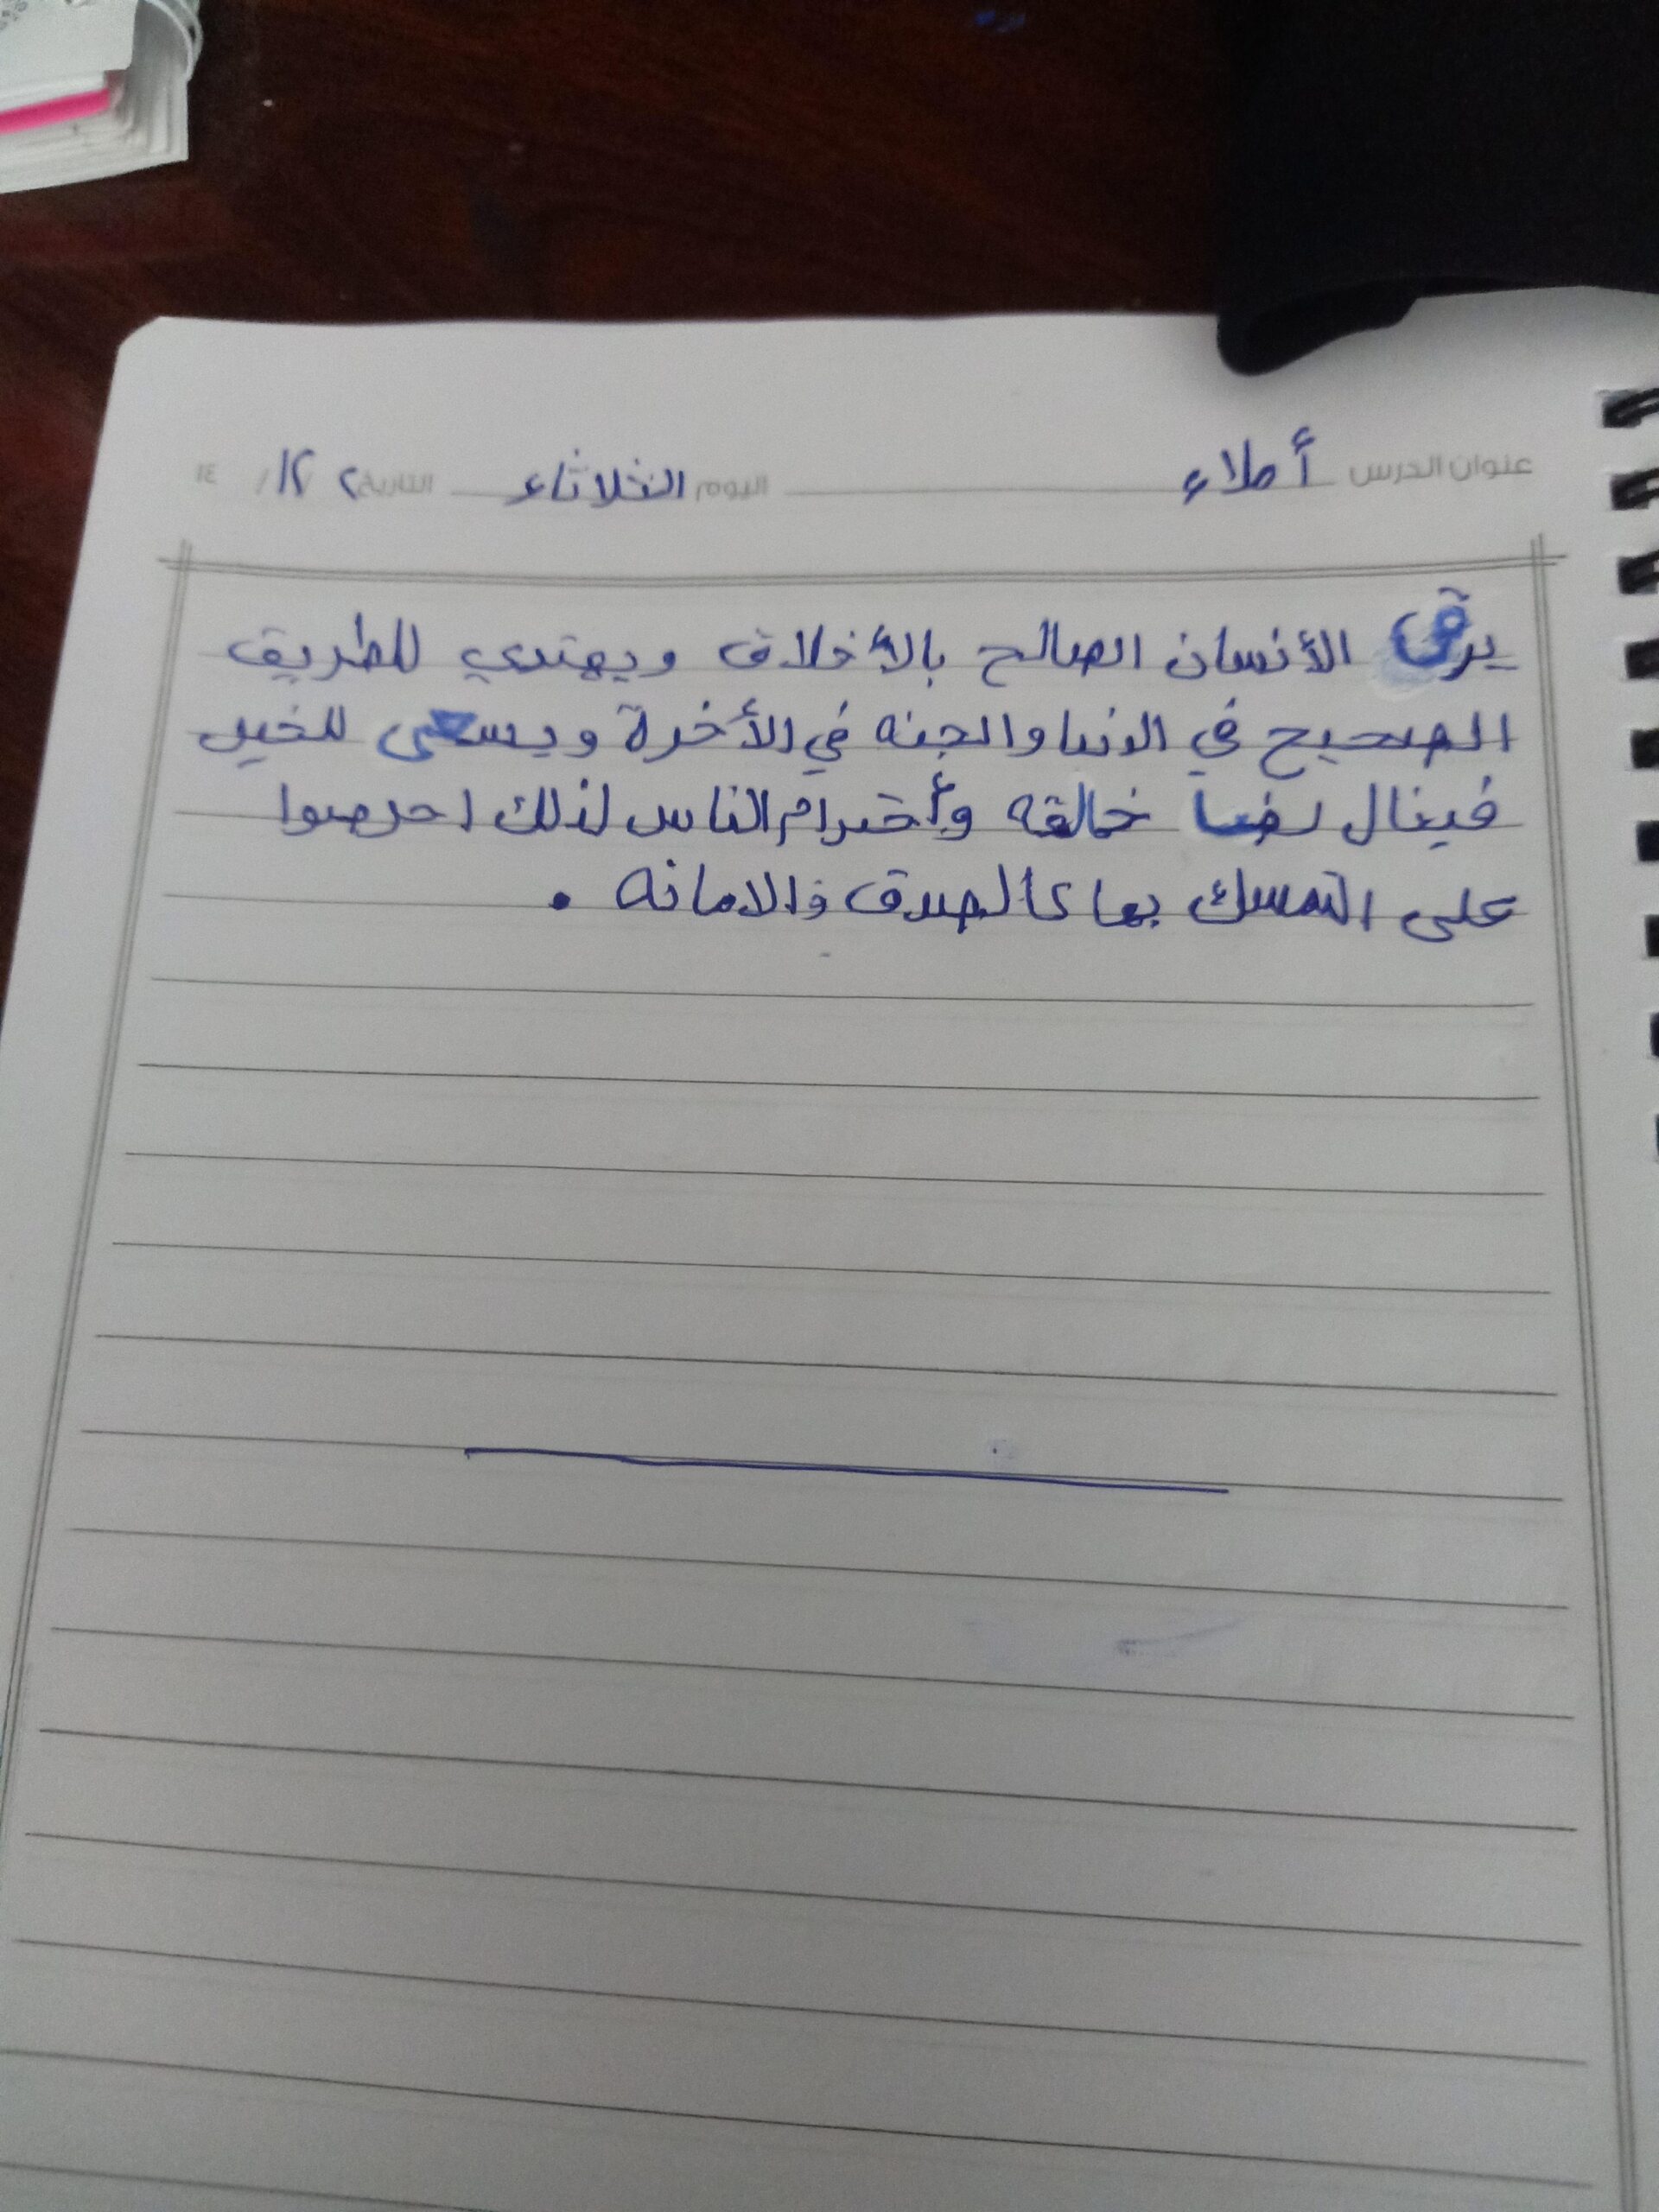 عنوان الدرس أملاء اليوم الثلاثاء التاريخ ٢ / ١٢ / ١٤
يرقى الأنسان الصالح بالأخلاق ويهتدي للطريق
الصحيح في الدنيا والجنه في الأخرة ويسعى للخير
فينال رضا خالقه وأحترام الناس لذلك احرصوا
على التمسك بها كالصدق والامانه .